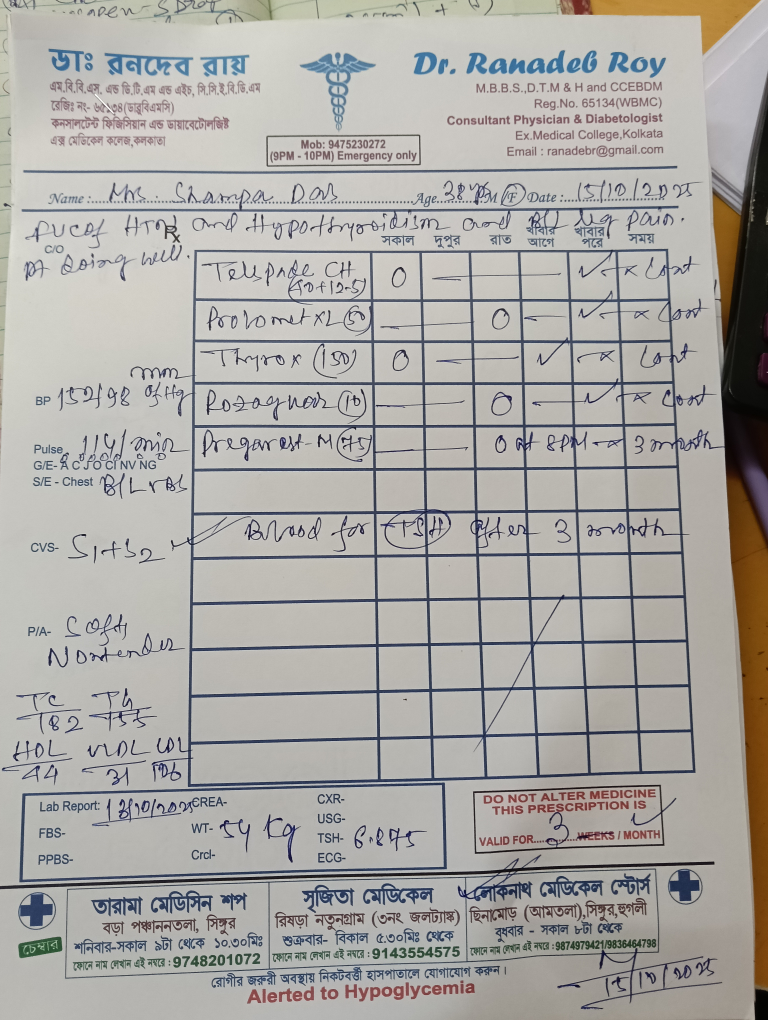 ডাঃ রনদেব রায়
এম.বি.বি.এস, এন্ড ডি.টি.এম এন্ড এইচ, সি.সি.ই.বি.ডি.এম
রেজিঃ নং- ৬৫১৩৪(ডাব্লুবিএমসি)
কনসালটেন্ট ফিজিসিয়ান এন্ড ডায়াবেটোলজিষ্ট
এক্স মেডিকেল কলেজ,কলকাতা
Mob: 9475230272
(9PM - 10PM) Emergency only
Dr. Ranadeb Roy
M.B.B.S.,D.T.M & H and CCEBDM
Reg.No. 65134(WBMC)
Consultant Physician & Diabetologist
Ex.Medical College,Kolkata
Email : ranadebr@gmail.com
Name: Mrs. Shampa Das Age. 38 yr M/F Date: 15/10/2025
HTN and Hypothyroidism and B/L leg pain.
Rx
C/O
Pt doing well.
সকাল দুপুর রাত খাবার আগে খাবার পরে সময়
CH O — ✓ → x Cont
(40+12.5)
Prolomet XL (50) — O — ✓ → x Cont
Thyrox (150) O — ✓ → x Cont
BP 152/98 mm of Hg
(10) — O — ✓ → x Cont
Pulse 114/min
-M (75) — O at 8PM → x 3 month
G/E- A C J O Cl NV NG
S/E - Chest B/L VBS
Blood for TSH after 3 month
CVS- S1+S2
P/A- Soft,
Nontender
TC 182 TG 155
HDL 44 VLDL 31 LDL 106
Lab Report: 13/10/2025 CREA- CXR-
FBS- WT- 54 Kg USG-
TSH- 6.875
PPBS- Crcl- ECG-
DO NOT ALTER MEDICINE
THIS PRESCRIPTION IS
VALID FOR 3 WEEKS / MONTH
চেম্বার
তারামা মেডিসিন শপ
বড়া পঞ্চাননতলা, সিঙ্গুর
শনিবার-সকাল ৯টা থেকে ১০.৩০মিঃ
ফোনে নাম লেখান এই নম্বরে : 9748201072
সৃজিতা মেডিকেল
রিষড়া নতুনগ্রাম (৩নং জলট্যাঙ্ক)
শুক্রবার- বিকাল ৫.৩০মিঃ থেকে
ফোনে নাম লেখান এই নম্বরে : 9143554575
লোকনাথ মেডিকেল স্টোর্স
ছিনামোড় (আমতলা),সিঙ্গুর,হুগলী
বুধবার - সকাল ৮টা থেকে
ফোনে নাম লেখান এই নম্বরে : 9874979421/9836464798
রোগীর জরুরী অবস্থায় নিকটবর্তী হাসপাতালে যোগাযোগ করুন।
Alerted to Hypoglycemia
15/10/2025